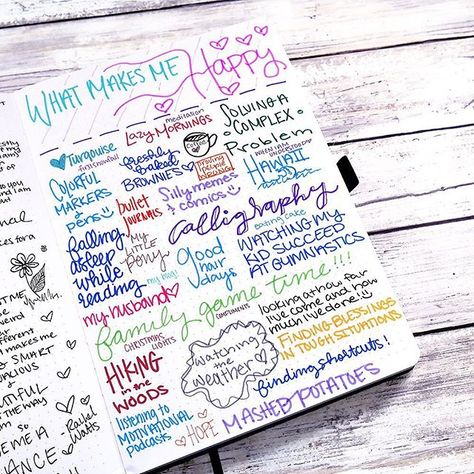 WHAT MAKES ME Happy
Turquoise
first snowfall
COLORFUL
MARKERS
+ PENS
falling
asleep
while
reading
my husband
meditation
Lazy MORNINGS
freshly
baked
BROWNIES
coffee
people
bullet
JOURNALS
Silly memes
+ comics
SOLVING A
COMPLEX
PROBLEM
WHEN I AM
UNDERSTOOD
HAWAII
calligraphy
my
little
pony
my blog!
good
hair
days
eating cake
WATCHING MY
KID SUCCEED
AT GYMNASTICS
family game time!!!
CHRISTMAS
LIGHTS
COMPLIMENTS
looking at how far
I've come and how
much I've done!
HIKING
in the
WOODS
Watching
the
weather
FINDING BLESSINGS
IN TOUGH SITUATIONS
finding shortcuts!
listening to
MOTIVATIONAL
podcasts
HOPE
MASHED POTATOES
makes me
SMART
THE WAY
ANCE
Rachel
Watts